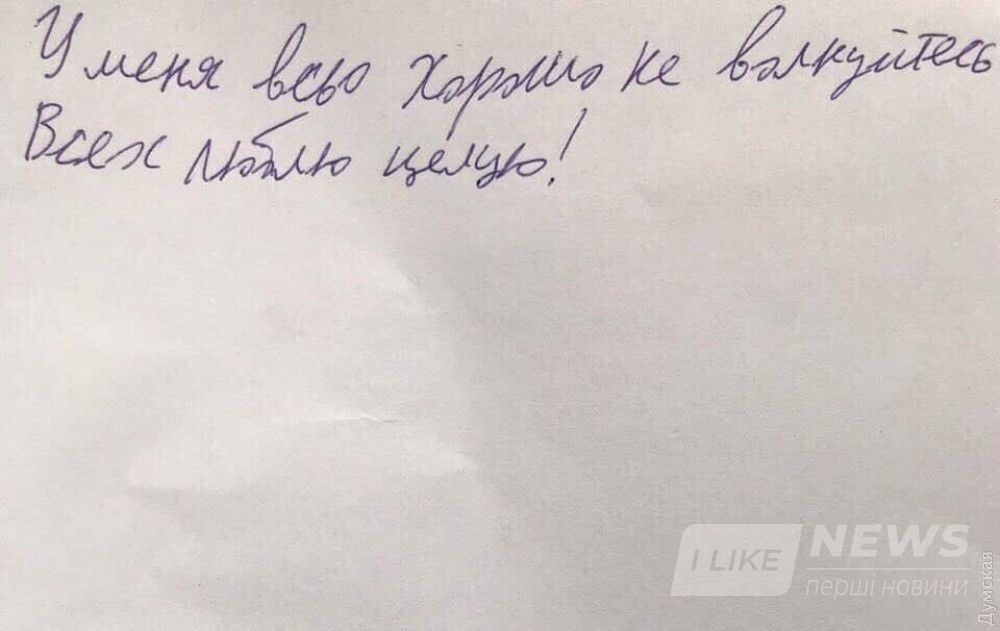 У меня всьо хорошо не волнуйтесь
Всех люблю целую!
I LIKE NEWS
перші новини
Думская